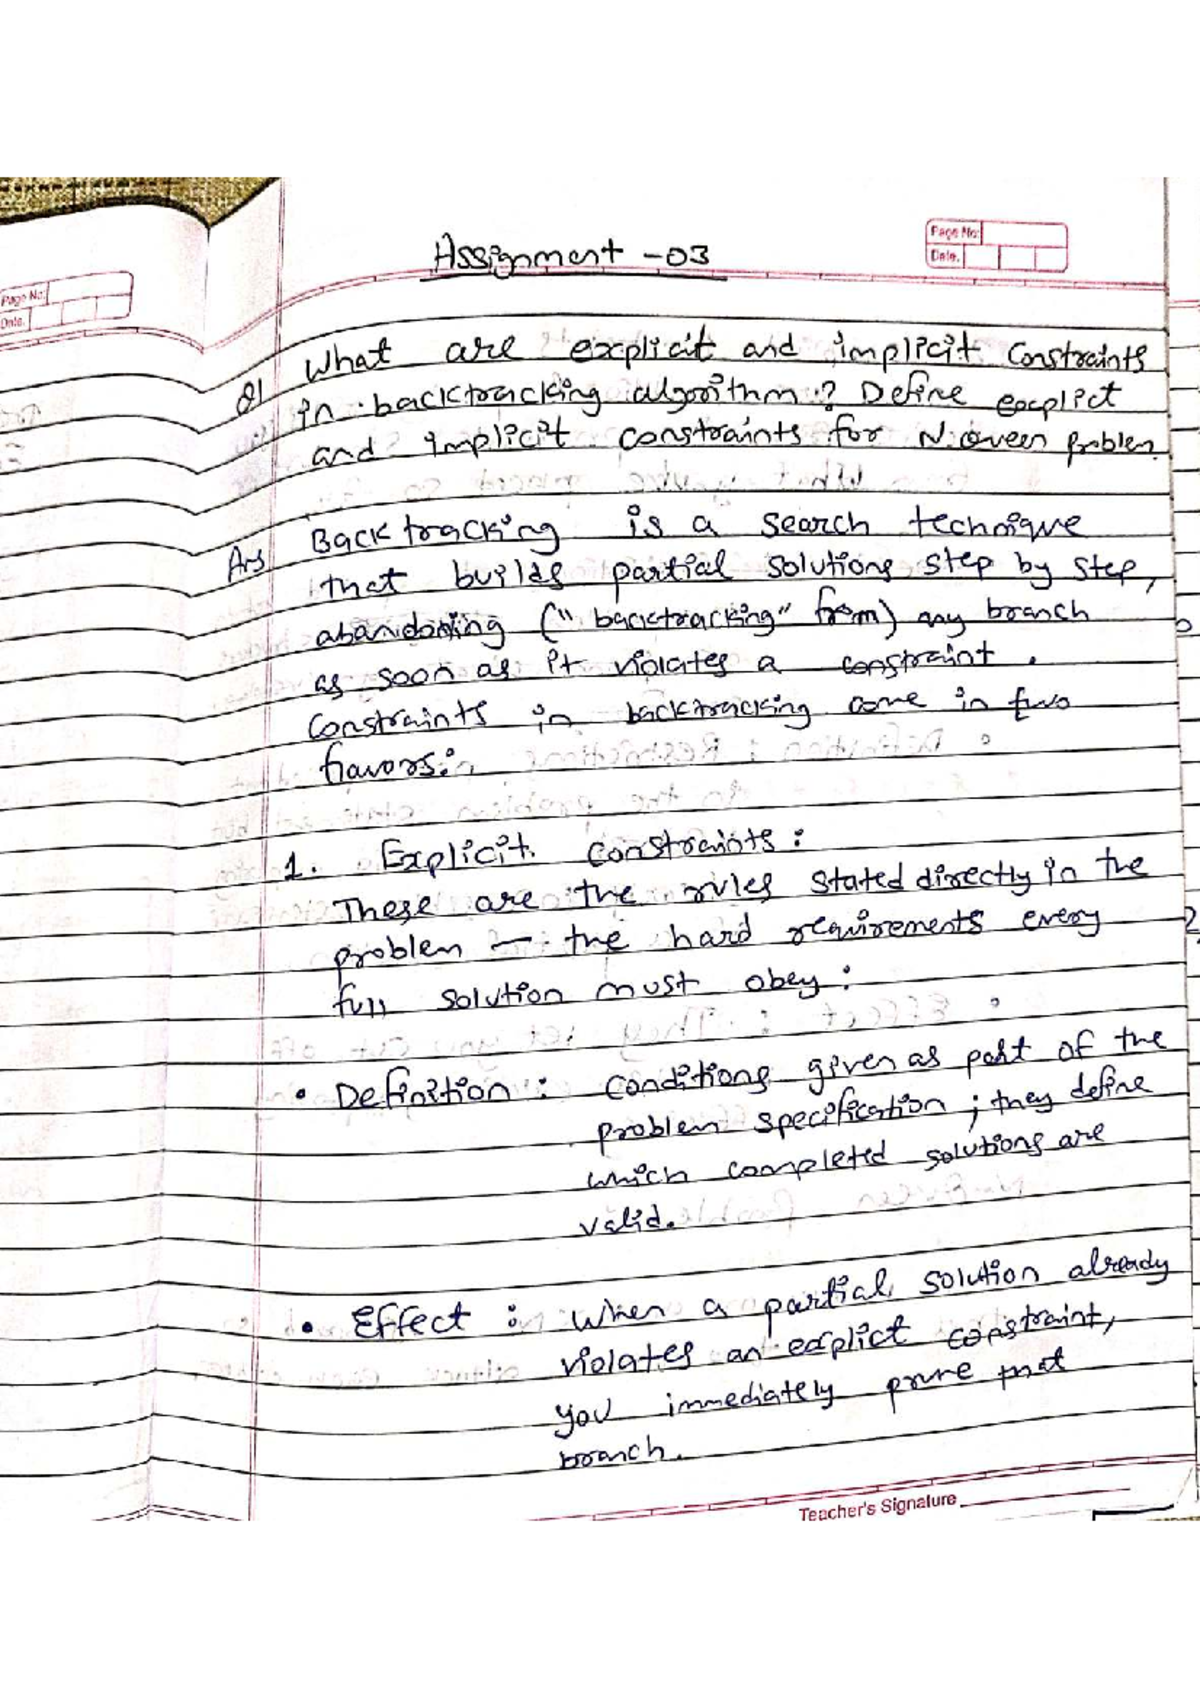 Assignment -03
Page No:
Date.
Page No:
Date.
Q1 What are explicit and implicit constraints
in backtracking algorithm? Define explict
and implicit constraints for N.Queen problem.
Ans Backtracking is a search technique
that builds partial solutions step by step,
abandoning ("backtracking" from) any branch
as soon as it violates a constraint.
Constraints in backtracking come in two
flavors:
1. Explicit constraints:
These are the rules stated directly in the
problem — the hard requirements every
full solution must obey:
• Definition: Conditions given as part of the
problem specification; they define
which completed solutions are
valid.
• Effect: When a partial solution already
violates an explict constraint,
you immediately prune that
branch.
Teacher's Signature